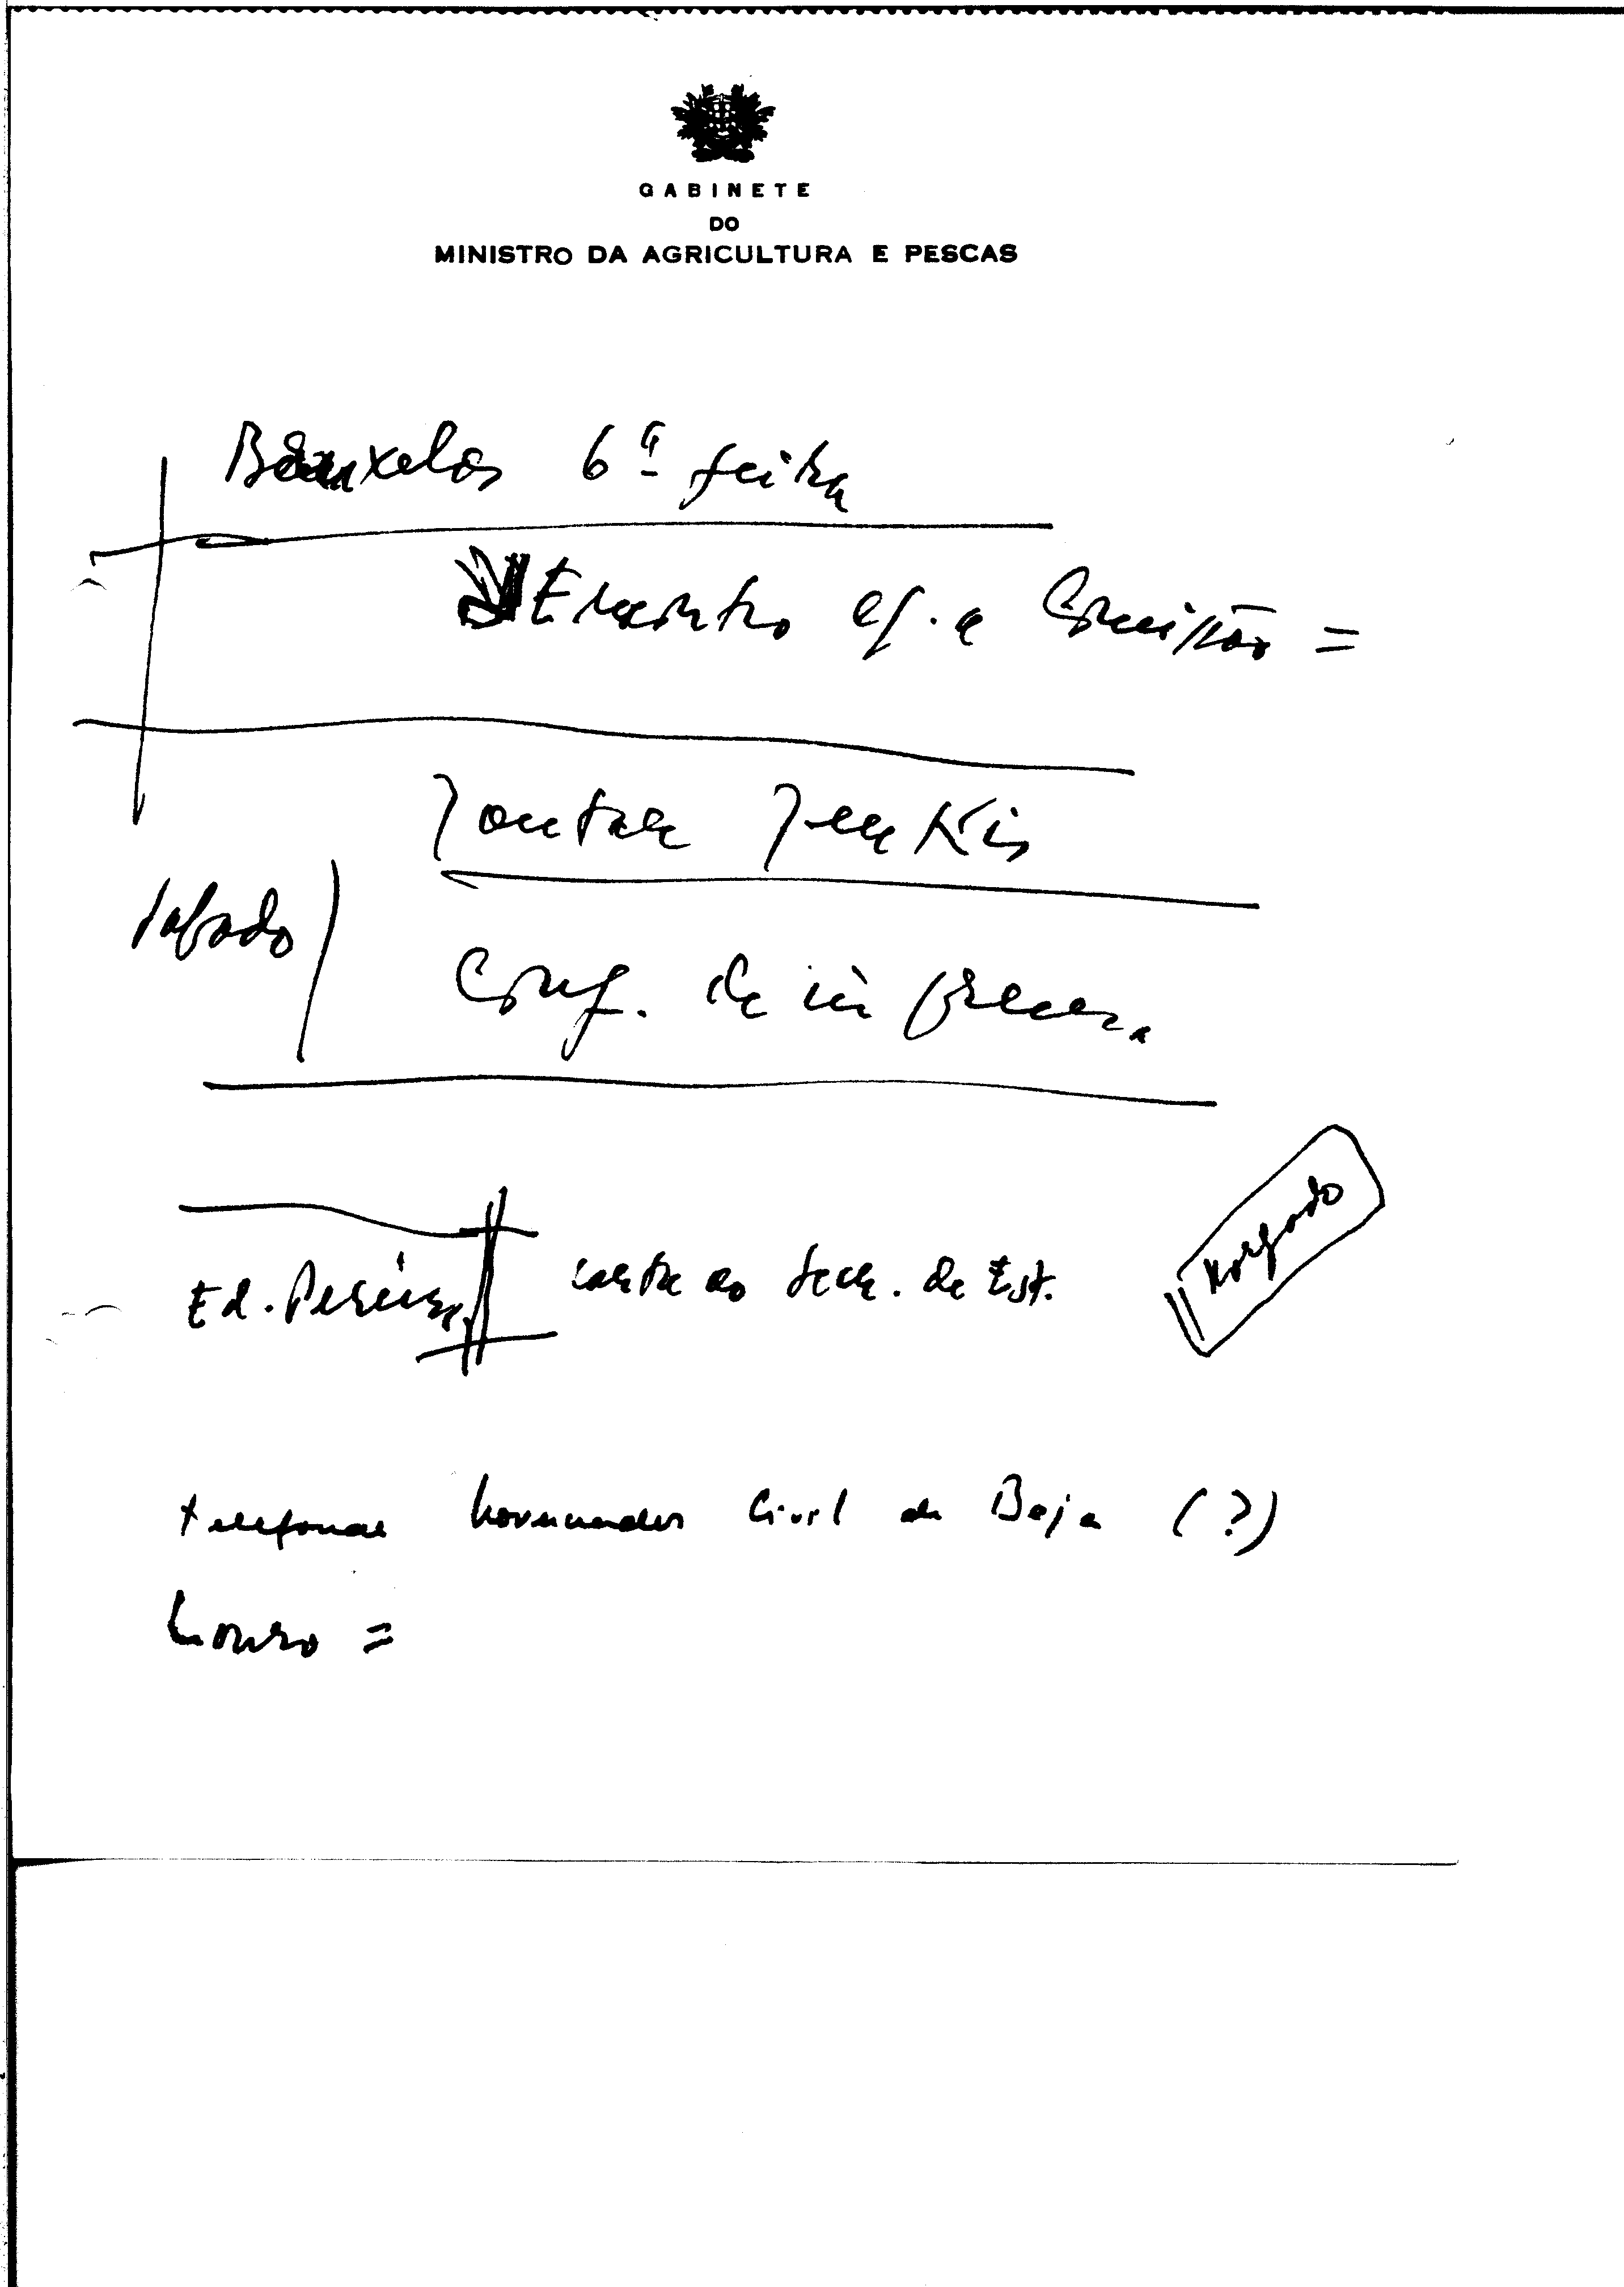 GABINETE
DO
MINISTRO DA AGRICULTURA E PESCAS
Bruxelas 6ª feira
Encontro c/. a Comissão =
Jantar Jenkis
Sabado
Conf. de imprensa
Morgado
Ed. Pereira carta ao Secr. de Est.
telefonar Governador Civil de Beja (?)
Louro =